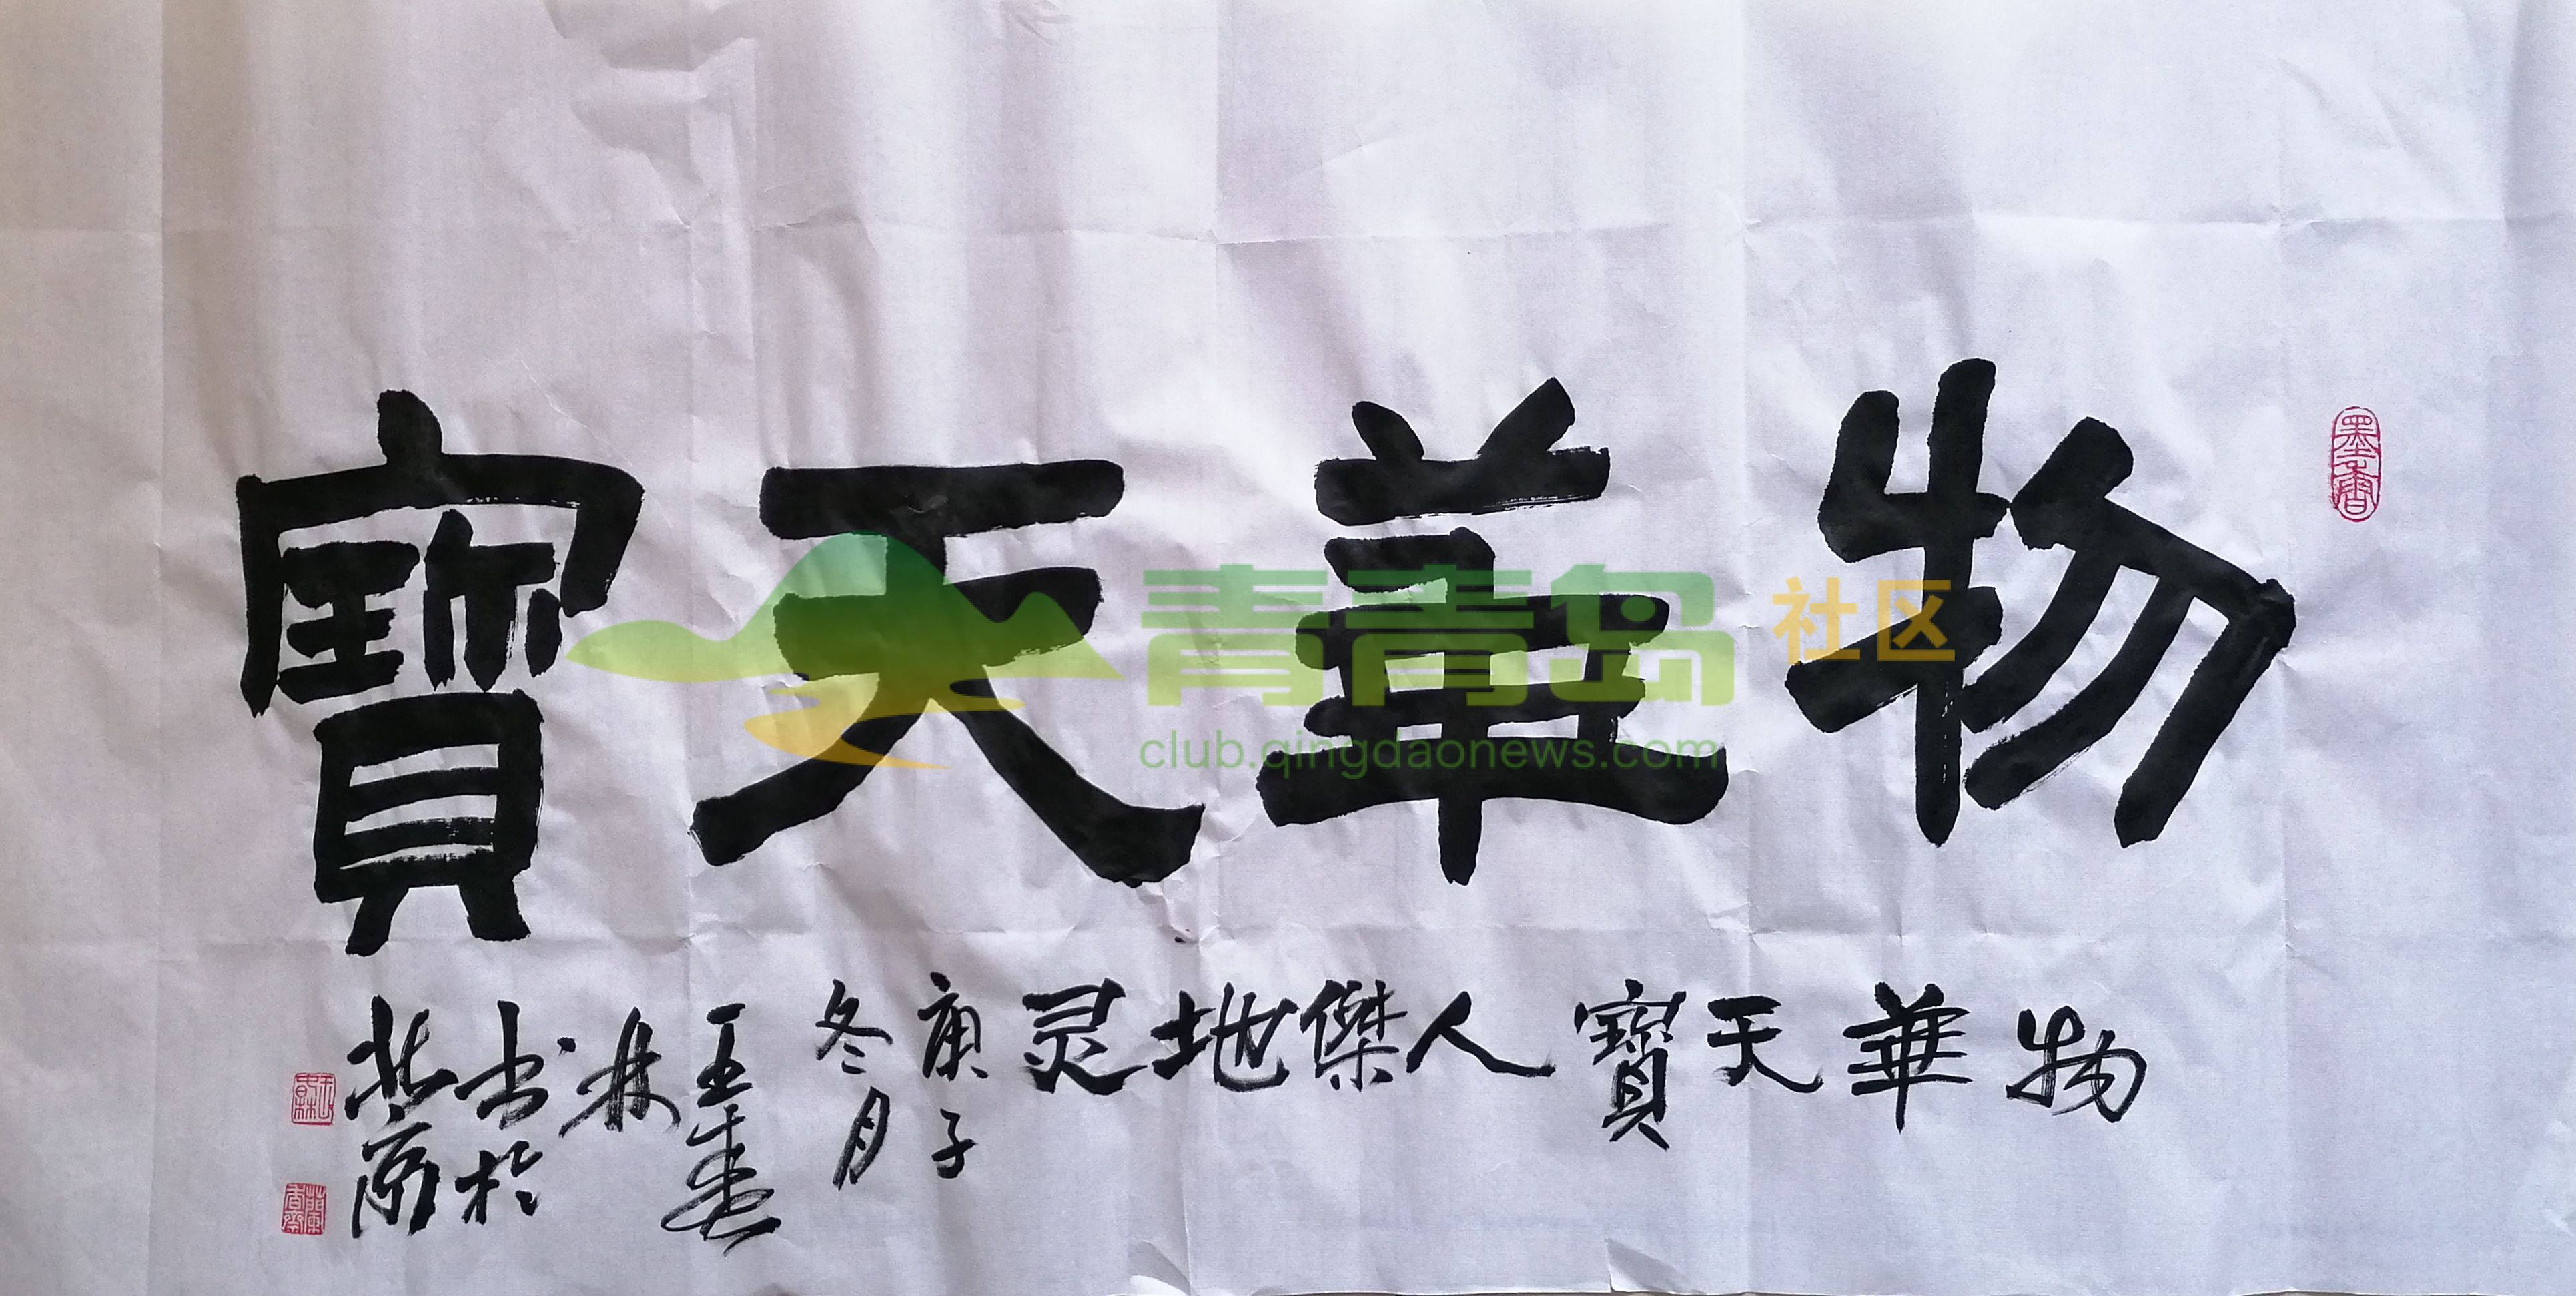 物華天寶
物華天寶人傑地灵
庚子
冬月
林
書於
墨香
青青岛社区
club.qingdaonews.com